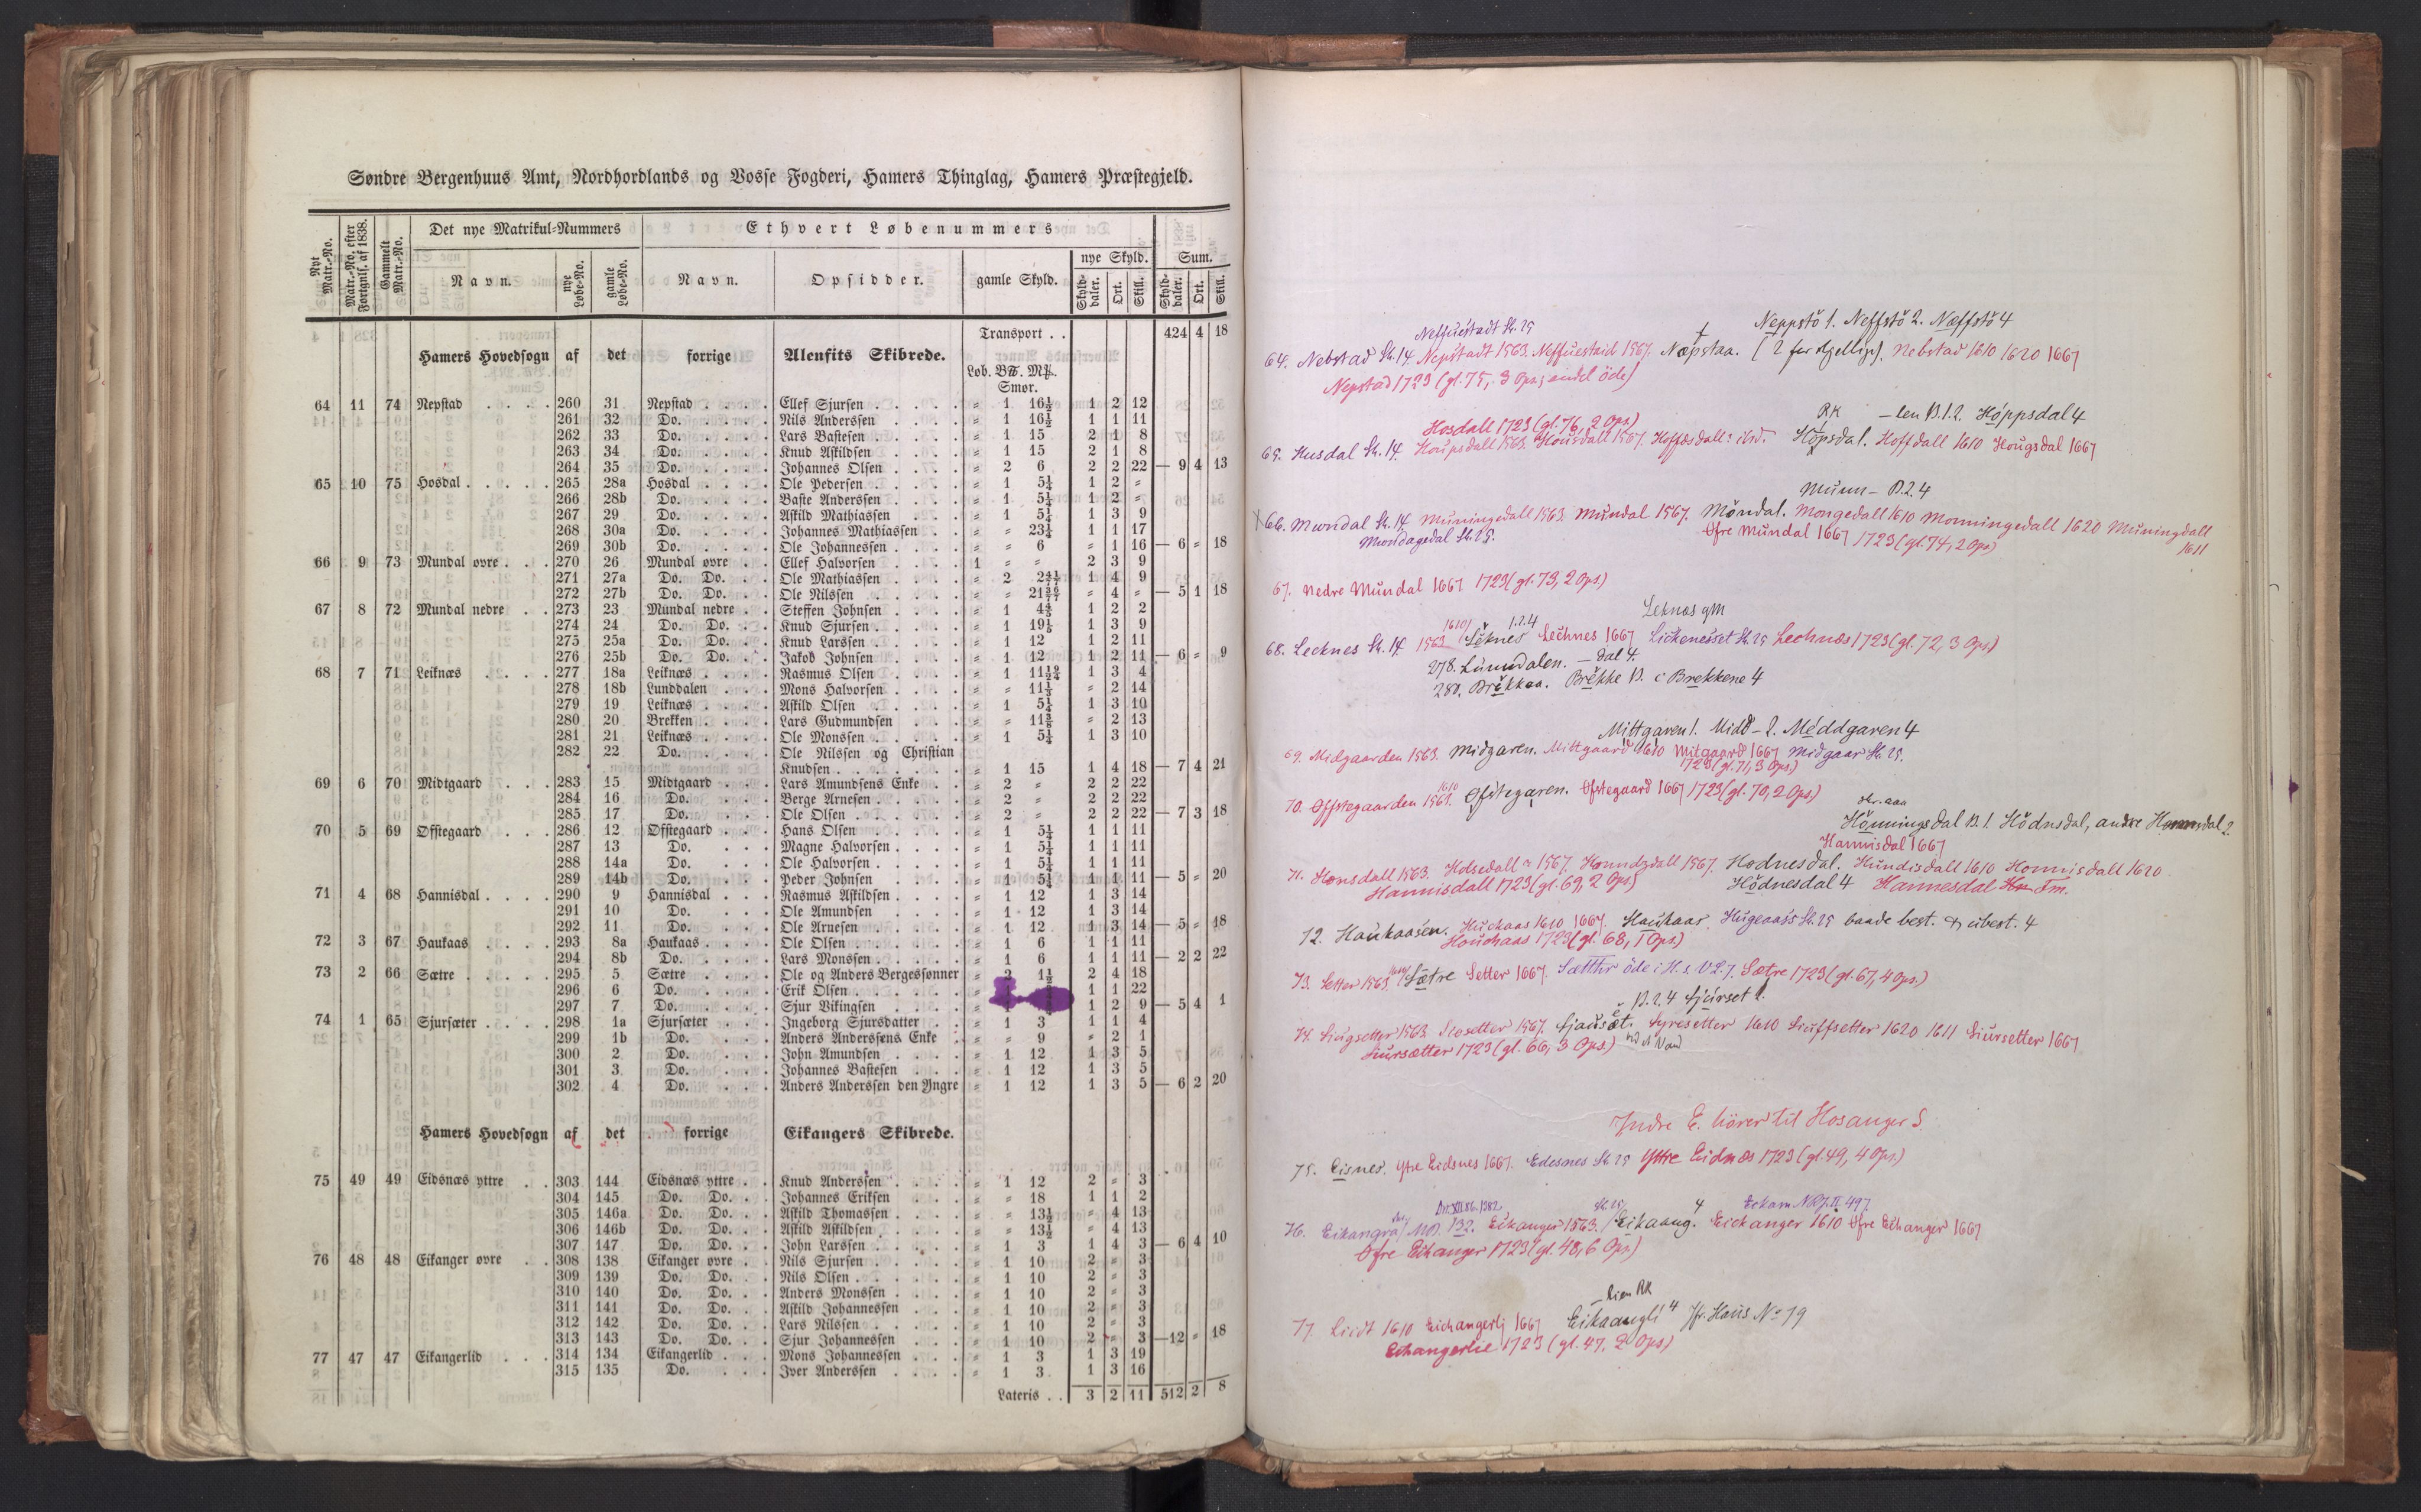 Søndre Bergenhuus Amt, Nordhordlands og Vosse Fogderi, Hamers Thinglag, Hamers Præstegjeld.
Nyt Matr.-No. Matr.-No. efter Fortgnls. af 1838. Gammelt Matr.-No. Det nye Matrikul-Nummers Ethvert Løbenummers
nye Skyld. Sum.
Navn. nye Løbe-No. gamle Løbe-No. Navn. Opsidder. gamle Skyld. Skyld-daler. Ort. Skill. Skyld-daler. Ort. Skill.
Transport . . 424 4 18
Hamers Hovedsogn af det forrige Alenfits Skibrede.
Løb. B℔. M℔.
Smør.
64 11 74 Nepstad . . . . 260 31 Nepstad . . . . Ellef Sjursen . . . . . = 1 16½ 1 2 12
261 32 Do. . . . . Nils Anderssen . . . . = 1 16½ 1 1 11
262 33 Do. . . . . Lars Bastesen . . . . . = 1 15 2 1 8
263 34 Do. . . . . Knud Askildsen . . . . = 1 15 2 1 8
264 35 Do. . . . . Johannes Olsen . . . . = 2 6 2 2 22 — 9 4 13
65 10 75 Hosdal . . . . . 265 28a Hosdal . . . . Ole Pedersen . . . . . = 1 5¼ 1 2 =
266 28b Do. . . . . Baste Anderssen . . . . = 1 5¼ 1 2 =
267 29 Do. . . . . Askild Mathiassen . . . = 1 5¼ 1 3 9
268 30a Do. . . . . Johannes Mathiassen . . = = 23¼ 1 1 17
269 30b Do. . . . . Ole Johannessen . . . . = = 6 = 1 16 — 6 = 18
66 9 73 Mundal øvre . . . 270 26 Mundal øvre . . Ellef Halvorsen . . . . 1 = = 2 3 9
271 27a Do. Do. . . Ole Mathiassen . . . . = 2 1 4 9
272 27b Do. Do. . . Ole Nilssen . . . . . = = = 4 = — 5 1 18
67 8 72 Mundal nedre . . 273 23 Mundal nedre . . Steffen Johnsen . . . . = 1 4⅘ 1 2 2
274 24 Do. Do. . . Knud Sjursen . . . . . = 1 19⅕ 1 3 9
275 25a Do. Do. . . Knud Larssen . . . . . = 1 12 1 2 11
276 25b Do. Do. . . Jakob Johnsen . . . . = 1 12 1 2 11 — 6 = 9
68 7 71 Leiknæs . . . . 277 18a Leiknæs . . . . Rasmus Olsen . . . . = 1 1 3 4
278 18b Lunddalen . . . Mons Halvorsen . . . . = = 11⅓ = 2 14
279 19 Leiknæs . . . . Askild Olsen . . . . . = 1 5¼ 1 3 10
280 20 Brekken . . . . Lars Gudmundsen . . . = = 11⅜ = 2 13
281 21 Leiknæs . . . . Ole Monssen . . . . . = 1 5¼ 1 3 10
282 22 Do. . . . . Ole Nilssen og Christian
Knudsen . . . . . . = 1 15 1 4 18 — 7 4 21
69 6 70 Midtgaard . . . 283 15 Midtgaard . . . Lars Amundsens Enke . . = 2 = 2 2 22
284 16 Do. . . . Berge Arnesen . . . . = 2 = 2 2 22
285 17 Do. . . . Ole Olsen . . . . . . = 2 = 2 2 22 — 7 3 18
70 5 69 Øfstegaard . . . 286 12 Øfstegaard . . . Hans Olsen . . . . . = 1 5¼ 1 1 11
287 13 Do. . . . Magne Halvorsen . . . . = 1 5¼ 1 1 11
288 14a Do. . . . Ole Halvorsen . . . . . = 1 5¼ 1 1 11
289 14b Do. . . . Peder Johnsen . . . . = 1 5¼ 1 1 11 — 5 = 20
71 4 68 Hannisdal . . . . 290 9 Hannisdal . . . Rasmus Askildsen . . . . = 1 12 1 3 14
291 10 Do. . . . Ole Amundsen . . . . = 1 12 1 3 14
292 11 Do. . . . Ole Arnesen . . . . . = 1 12 1 3 14 — 5 = 18
72 3 67 Haukaas . . . . 293 8a Haukaas . . . . Ole Olsen . . . . . . = 1 6 1 1 11
294 8b Do. . . . . Lars Monssen . . . . . = 1 6 1 1 11 — 2 2 22
73 2 66 Sætre . . . . . 295 5 Sætre . . . . Ole og Anders Bergessønner = 2 1½ 2 4 18
296 6 Do. . . . . Erik Olsen . . . . . . = 1 1 22
297 7 Do. . . . . Sjur Vikingsen . . . . = 1 2 9 — 5 4 1
74 1 65 Sjursæter . . . . 298 1a Sjursæter . . . Ingeborg Sjursdatter . . = 1 3 1 1 4
299 1b Do. . . . Anders Anderssens Enke . = = 9 = 2 1
300 2 Do. . . . John Amundsen . . . . = 1 12 1 3 5
301 3 Do. . . . Johannes Bastesen . . . = 1 12 1 3 5
302 4 Do. . . . Anders Anderssen den Yngre = 1 12 1 3 5 — 6 2 20
Hamers Hovedsogn af det forrige Eikangers Skibrede.
75 49 49 Eidsnæs yttre . . 303 144 Eidsnæs yttre . . Knud Anderssen . . . . = 1 12 2 = 3
304 145 Do. Do. . . Johannes Eriksen . . . = = 18 1 1 2
305 146a Do. Do. . . Askild Thomassen . . . . = = 13½ = 4 13
306 146b Do. Do. . . Askild Askildsen . . . . = = 13½ = 4 13
307 147 Do. Do. . . John Larssen . . . . . = 1 3 1 4 3 — 6 4 10
76 48 48 Eikanger øvre . . 308 138 Eikanger øvre . . Nils Sjursen . . . . . = 1 10 2 = 3
309 139 Do. Do. . . Nils Olsen . . . . . . = 1 10 2 = 3
310 140 Do. Do. . . Anders Monssen . . . . = 1 10 2 = 3
311 141 Do. Do. . . Askild Johannessen . . . = 1 10 2 = 3
312 142 Do. Do. . . Lars Nilssen . . . . . = 1 10 2 = 3
313 143 Do. Do. . . Sjur Johannessen . . . = 1 10 2 = 3 — 12 = 18
77 47 47 Eikangerlid . . . 314 134 Eikangerlid . . . Mons Johannessen . . . = 1 3 1 3 19
315 135 Do. . . . Iver Anderssen . . . . = 1 3 1 3 16
Lateris . . 3 2 11 512 2 8
Neffuestadt St. 25 Neppstö 1. Neffstö 2. Næffstö 4
64. Nebstad St. 14. Nepstadt 1563. Neffuestaid 1567. Næpstaa. Nebstad 1610 1620 1667
Nepstad 1723 (gl. 75, 3 Ops; endel öde)
Hosdall 1723 (gl. 76, 2 Ops) RK — len B.1.2. Höppsdal 4
65. Husdal St. 14. Houpsdall 1563. Housdall 1567. Hoffæsdall: ibid. Höpsdal. Hoffdall 1610 Hougsdal 1667
Munn- B.2.4
66. Mundal St. 14 Muningedall 1563. Mundal 1567. Möndal. Mongedall 1610 Monningedall 1620 Muningdall 1611
Mondagedal St. 25. Øfre Mundal 1667 1723 (gl. 74, 2 Ops)
67. Nedre Mundal 1667 1723 (gl. 73, 2 Ops.)
Leknæs gM
1610 1.2.4
68. Lecknes St. 14. 1563 Leknes Lechnes 1667 Lickenesset St. 25 Lechnæs 1723 (gl. 72, 3 Ops)
278. Lunndalen. — dal 4.
280. Brekkaa. Brekke B. i Brekkene 4
Mittgaren 1. Midd- 2. Meddgaren 4
69. Midgaarden 1563. Midgaren. Mittgaard 1610 Mitgaard 1667 Midgaar St. 25.
1723 (gl. 71, 3 Ops.)
1610
70. Øffstegaarden 1563. Øfstegaren. Øfstegaard 1667 1723 (gl. 70, 2 Ops)
Hönningsdal B.1. Hödnsdal, andre Honnsdal 2.
Hannisdal 1667
71. Honsdall 1563. Hodnesdal. Hundisdall 1610 Honnisdall 1620
Hannisdall 1723 (gl. 69, 2 Ops) Hödnesdal 4 Hannesdal Tm.
72. Haukaasen. Huckaas 1610 1667. Haukaas. Hugeaass St. 25 baade best. & ubest. 4
Houchaas 1723 (gl. 68, 1 Ops.)
73. Setter 1563. 1610 Sætre Setter 1667. Sætthr öde i H. s. V.L.7. Sætre 1723 (gl. 67, 4 Ops.)
B.2.4 Sjurset 1.
74. Siugsetter 1563. Siosetter 1567. Sjauset. Syresetter 1610 Siuffsetter 1620 1611 Siursetter 1667
Siursætter 1723 (gl. 66, 3 Ops.) ved et Vand
Indre E. hörer til Hosanger S.
75. Eisnes. Ytre Eidsnes 1667. Edesnes St. 25 Yttre Eidnæs 1723 (gl. 49, 4 Ops.)
76. Eikangra MB. 132. Eikanger 1563. Eikaang. 4 Eickanger 1610 Øfre Eikanger 1667
Øfre Eikanger 1723 (gl. 48, 6 Ops)
— lien RK
77. Liidt 1610 Eichangerlj 1667 Eikaangli 4 Jfr. Haus No 79
Echangerlie 1723 (gl. 47, 2 Ops)